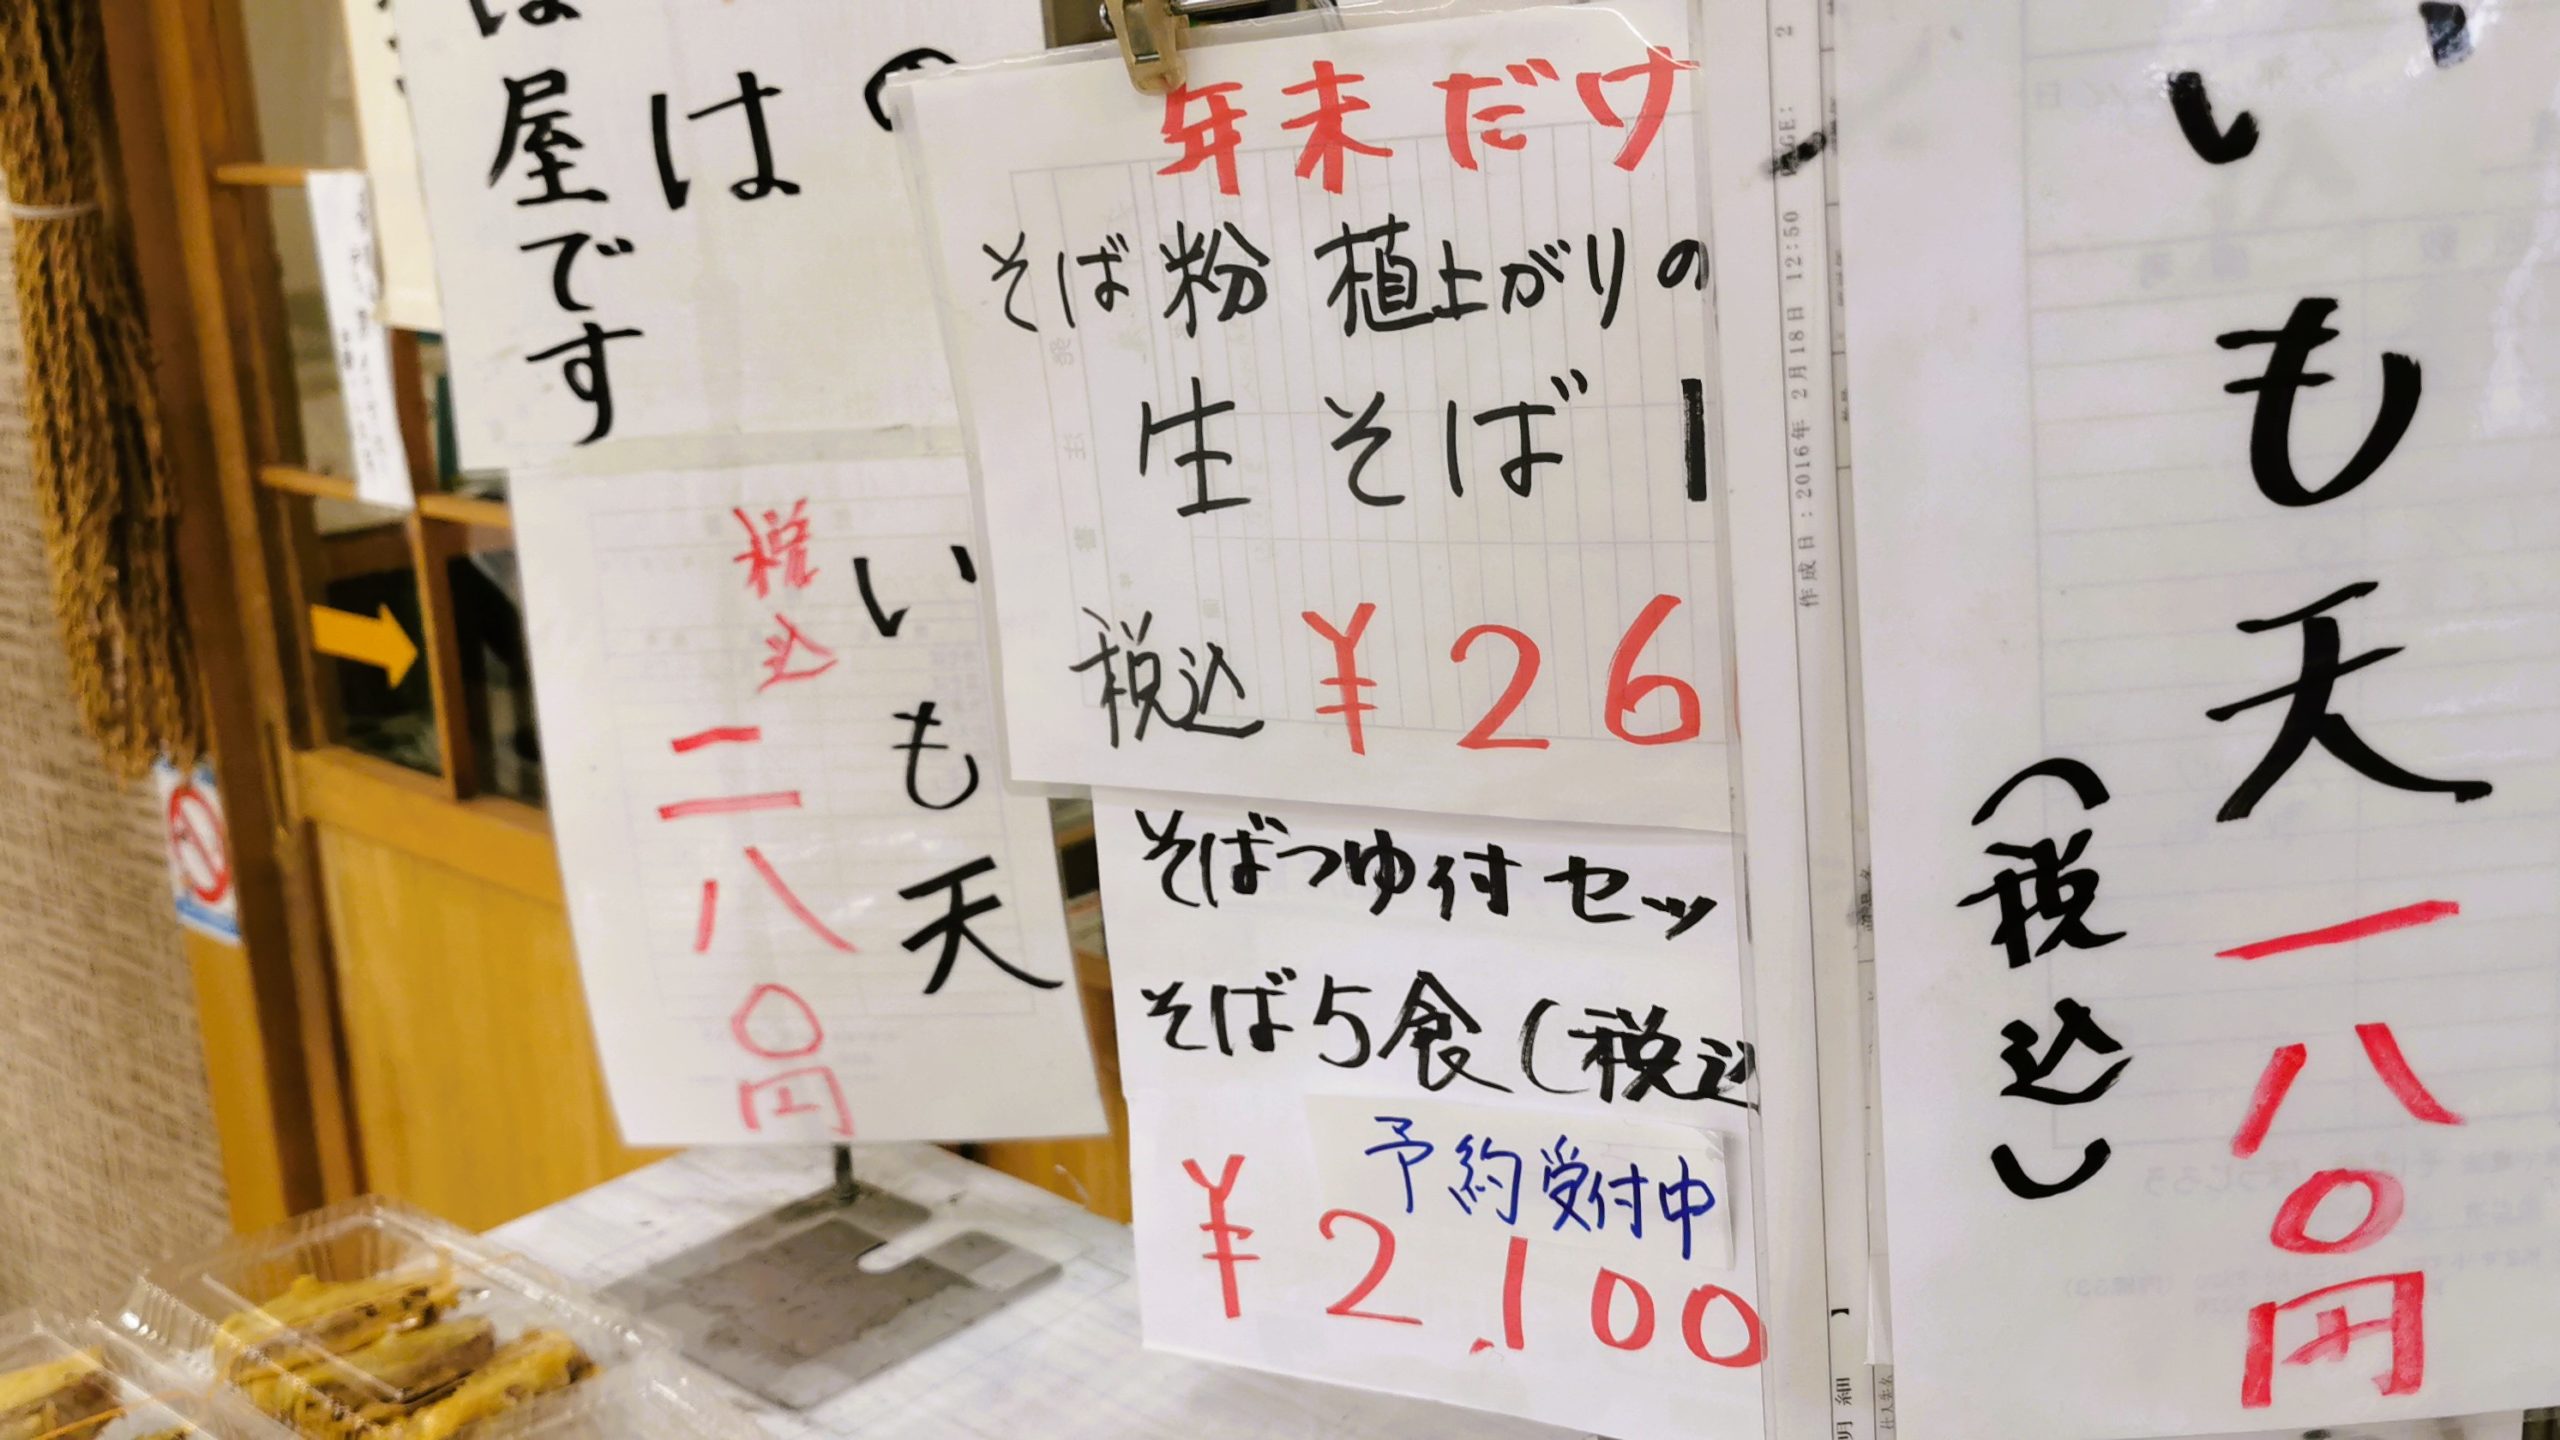 は
屋です
は
いも天
税込
二八〇円
年末だけ
そば粉植上がりの
生そば1
税込¥26
そばつゆ付セッ
そば5食(税込
予約受付中
¥2,100
作成日:2016年 2月18日 12:50
2
いも天
一八〇円
(税込)